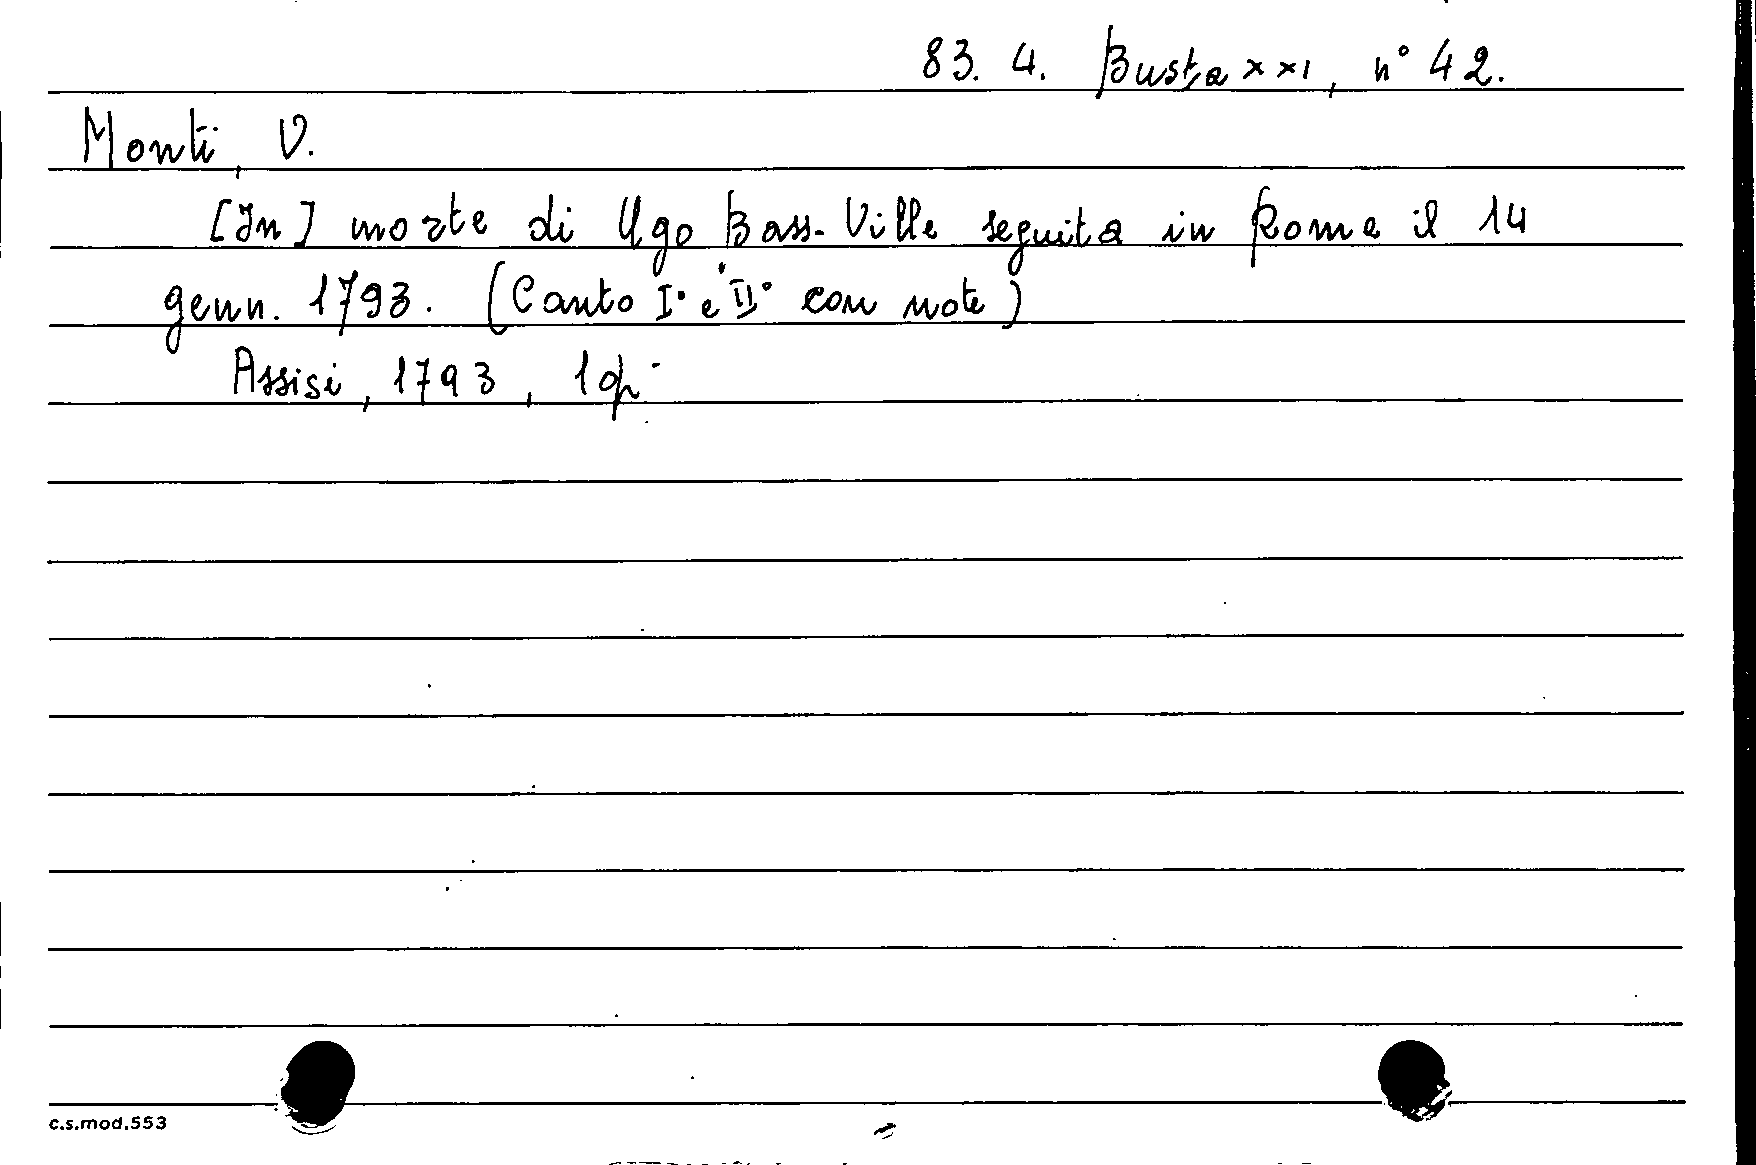 83. 4. Busta XXI, n° 42.
Monti, V.
[In] morte di Ugo Bass-Ville seguita in Roma il 14
genn. 1793. (Canto I° e II° con note)
Assisi, 1793, 1 op.
c.s.mod.553